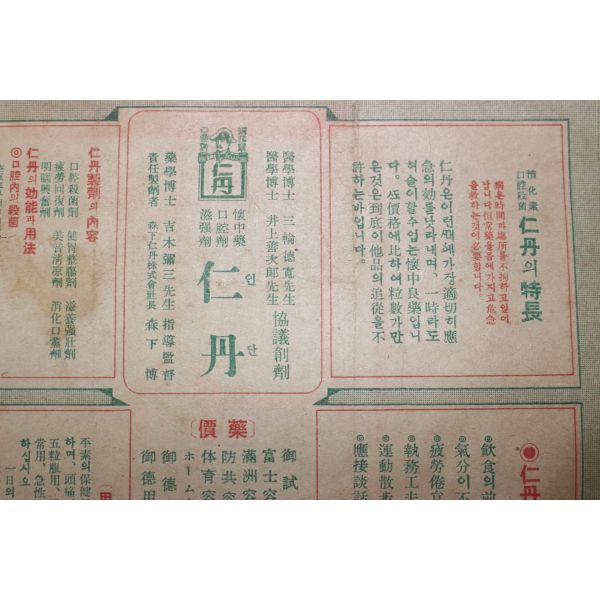 消化素
口腔殺菌
仁丹의特長
病은時間과場所를不拘하고일어
납니다恒常藥을몸에가지고危急
을救하는것이必要합니다。
仁丹은이런때에가장適切히應
急의効를낫타내며、一時라도
허술이할수업는懷中良藥입니
다。또價格에比하여粒數가만
은것은到底이他品의追從을不
許하는바입니다。
仁丹
醫學博士 三輪德寬先生
醫學博士 井上善次郎先生
協議創劑
懷中藥
口腔劑
滋强劑
仁丹
인단
藥學博士 吉木彌三先生指導監督
責任製劑者 森下仁丹株式會社長 森下博
仁丹製劑의內容
口腔殺菌劑 健胃整腸劑 滋養强壯劑
疲勞回復劑 美音淸凉劑 消化口熏劑
明腦興奮劑
仁丹의効能과用法
◎口腔內의殺菌
◉仁丹
◎飮食의前
◎氣分이不
◎疲勞倦
◎執務工夫
◎運動散步
◎應接談話
藥價
御試
富士容
滿洲容
防共容
体育容
ホーム
御德
御德用
平素의保健
五粒服用、
하며、頭痛
常用、急性
하십시오
一日의